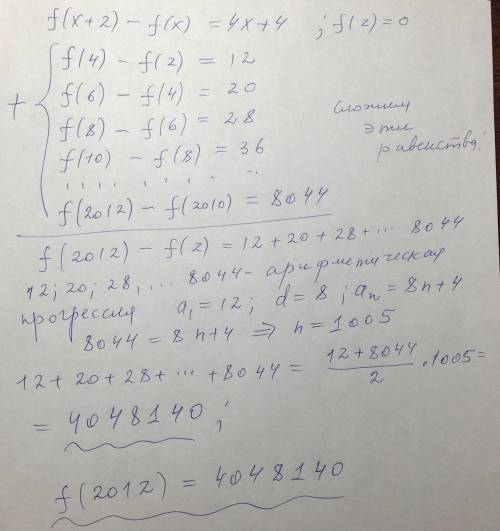 f(x+2) - f(x) = 4x+4 ; f(2)=0
+ { f(4) - f(2) = 12
f(6) - f(4) = 20
f(8) - f(6) = 28
f(10) - f(8) = 36
сложим
эти
равенства:
. . . . . . . . .
f(2012) - f(2010) = 8044
f(2012) - f(2) = 12 + 20 + 28 + ... 8044
12; 20; 28, ... 8044 - арифметическая
прогрессия a₁ = 12; d = 8; aₙ = 8n+4
8044 = 8n+4 ⇒ n = 1005
12 + 20 + 28 + ... + 8044 = (12 + 8044)/2 · 1005 =
= 4048140 ;
f(2012) = 4048140